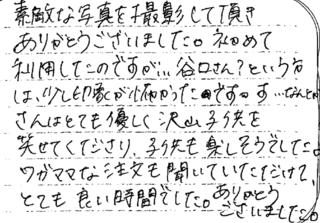 素敵な写真を撮影して頂き
ありがとうございました。初めて
利用したのですが…谷口さん?という方
は、少し印象が怖かったのです
さんはとても優しく沢山子供を
笑せてくださり、子供も楽しそうでした。
ワガママな注文も聞いていただけて、
とても良い時間でした。ありがとう
ございました。